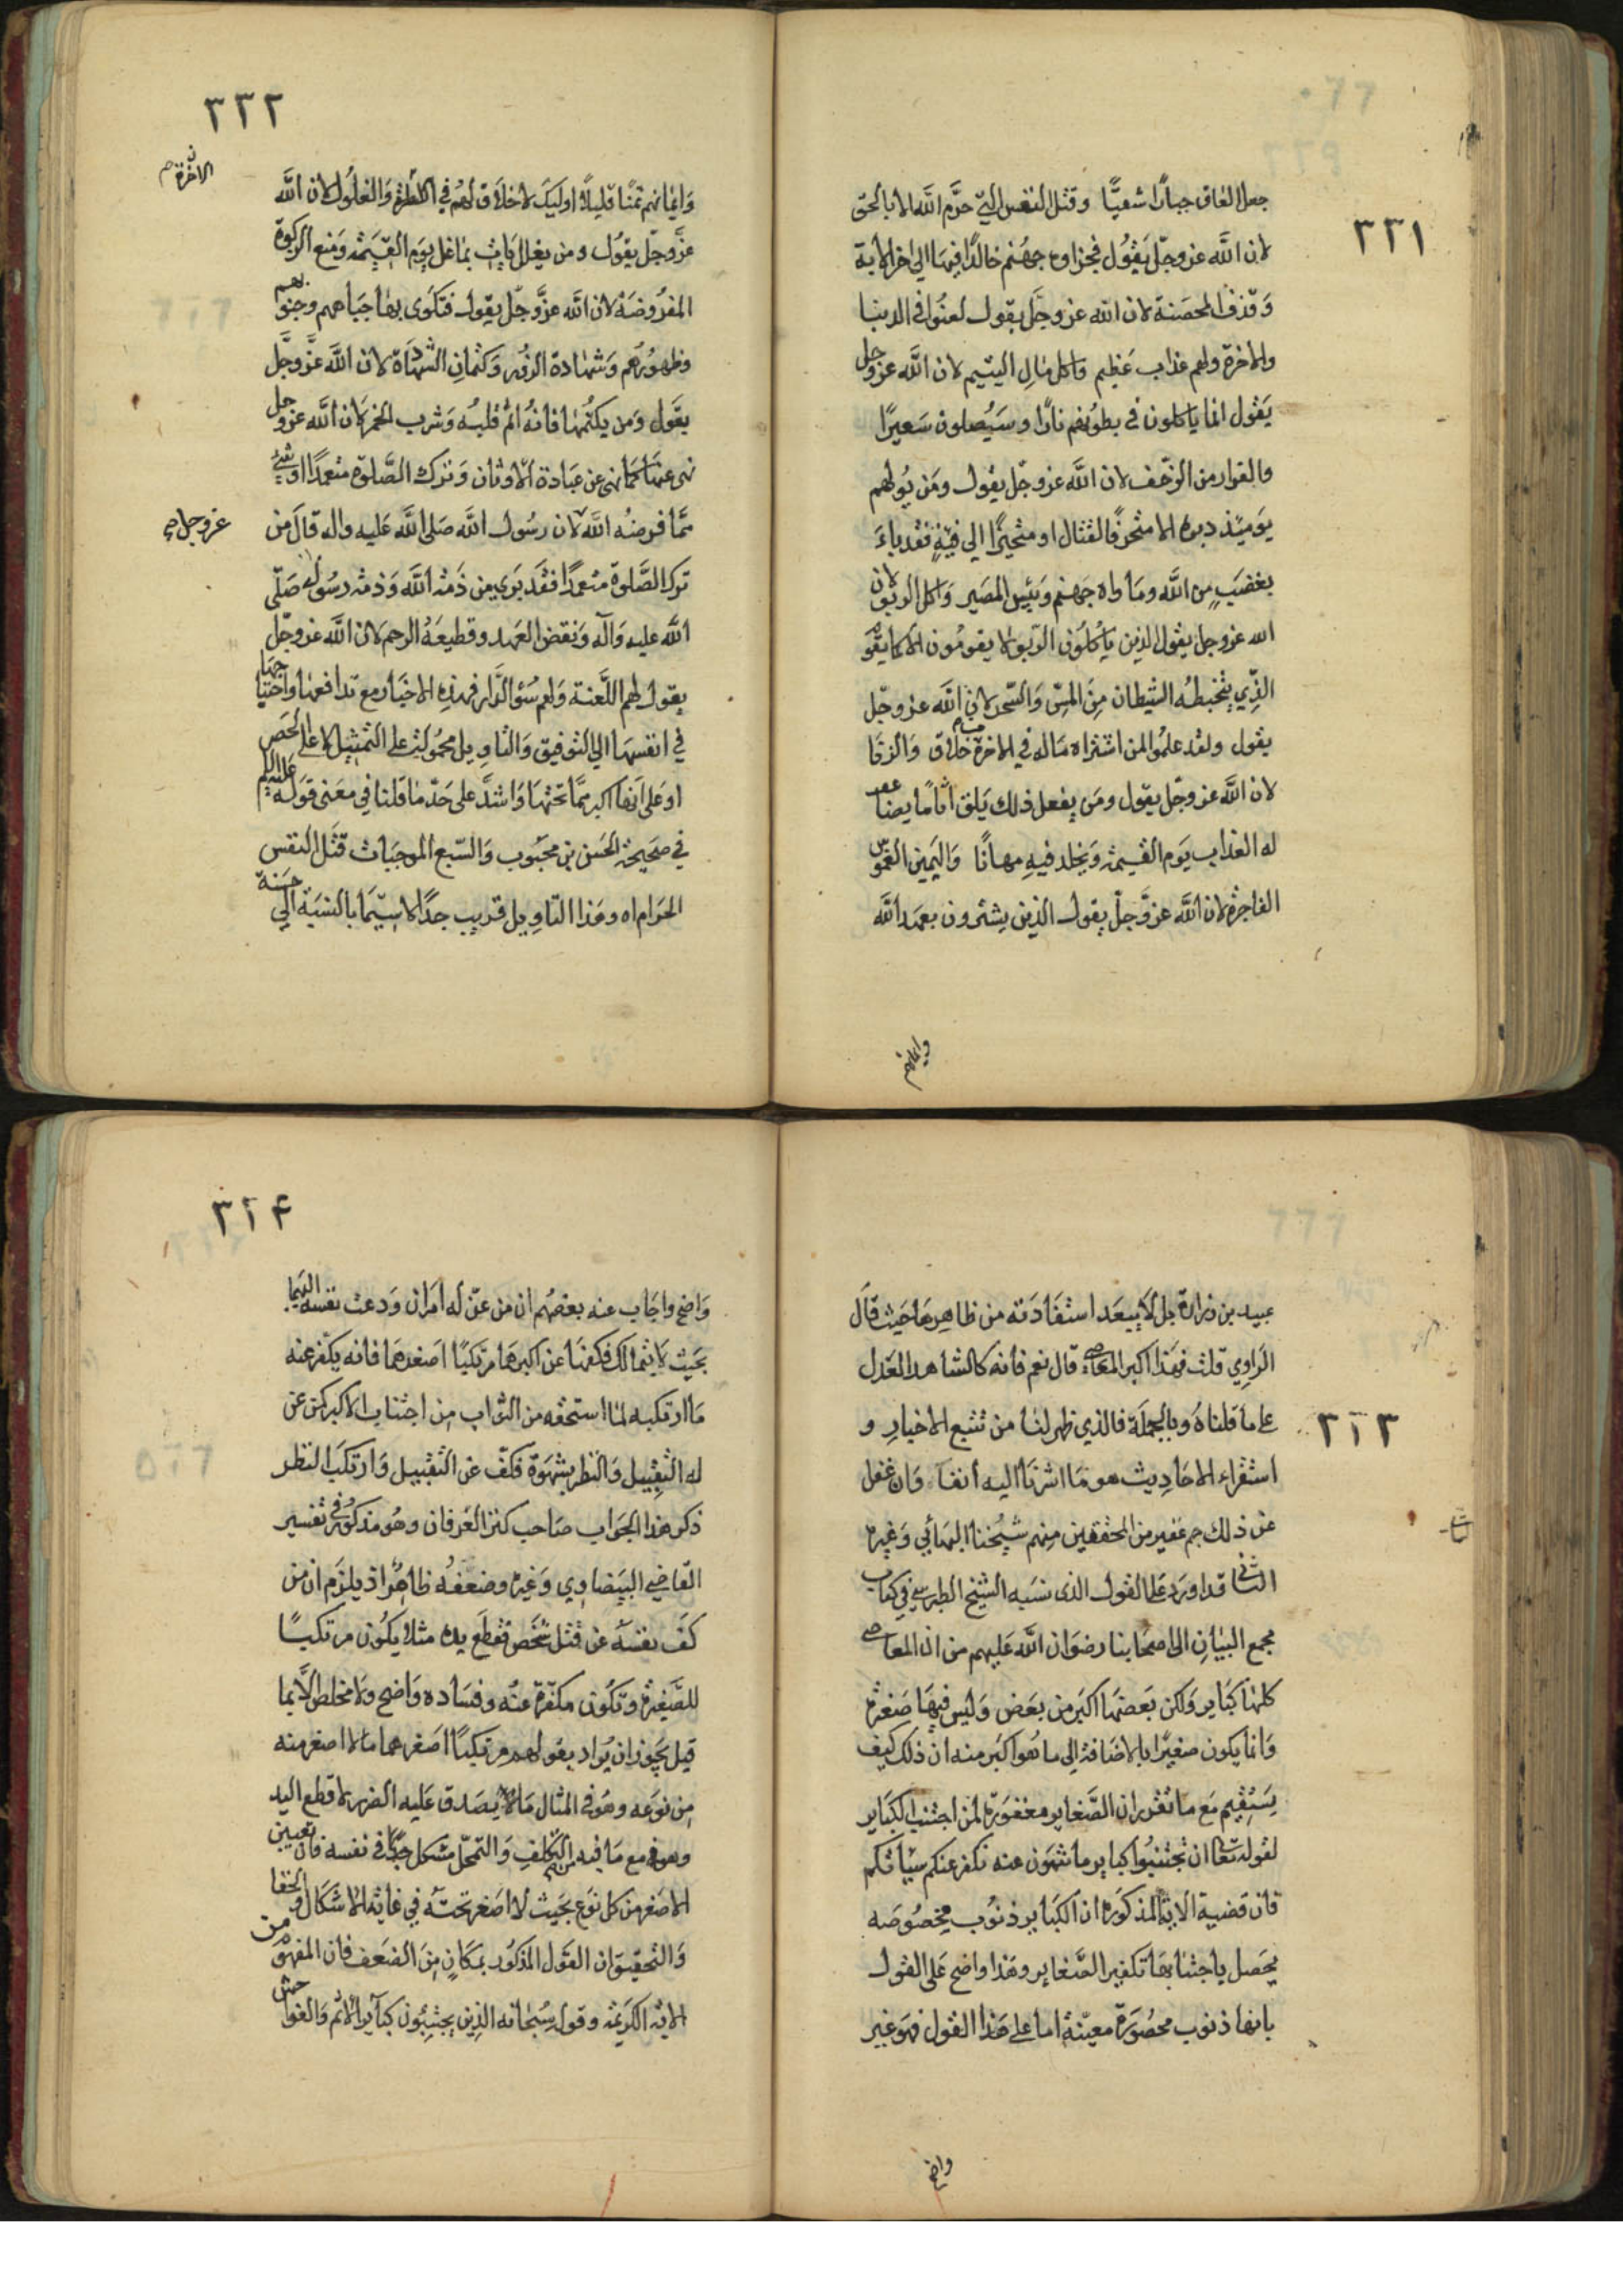 ٣٣١
جعل العاق جبارًا شقيًّا وقتل النفس التي حرّم الله الا بالحق
لان الله عز وجلّ يقول فجزاوه جهنم خالدًا فيها الى اخر الاية
وقذف المحصنة لان الله عز وجلّ يقول لعنوا في الدنيا
والاخرة ولهم عذاب عظيم واكل مال اليتيم لان الله عز وجل
يقول انما ياكلون في بطونهم نارًا وسيصلون سعيرًا
والفرار من الزحف لان الله عز وجلّ يقول ومن يولهم
يومئذ دبره الا متحرفًا لقتال او متحيزًا الى فئة فقد باء
بغضبٍ من الله وماواه جهنم وبئس المصير واكل الربوا لان
الله عز وجل يقول الذين ياكلون الربوا لا يقومون الا كما يقوم
الذي يتخبطه الشيطان من المسّ والسّحر لان الله عز وجلّ
يقول ولقد علموا لمن اشتراه ماله في الاخرة من خلاق والزنا
لان الله عز وجلّ يقول ومن يفعل ذلك يلق اثامًا يضاعف
له العذاب يوم القيمة ويخلد فيه مهانًا واليمين الغموس
الفاجرة لان الله عز وجلّ يقول الذين يشترون بعهد الله
وايمانهم
٣٣٢
وايمانهم ثمنًا قليلًا اوليك لا خلاق لهم في الاخرة والغلول لان الله
الاخرة
عز وجلّ يقول ومن يغلل يات بما غل يوم القيمة ومنع الزكوة
المفروضة لان الله عز وجلّ يقول فتكوى بها جباههم وجنوبهم
وظهورهم وشهادة الزور وكتمان الشهادة لان الله عز وجل
يقول ومن يكتمها فانه اثم قلبه وشرب الخمر لان الله عز وجل
نهى عنها كما نهى عن عبادة الاوثان وترك الصلوة متعمدًا او شئ
مما فرضه الله لان رسول الله صلى الله عليه واله قال من
عز وجل
ترك الصلوة متعمدًا فقد برى من ذمة الله وذمة رسوله صلّى
الله عليه وآله ونقض العهد وقطيعة الرحم لان الله عز وجلّ
يقول لهم اللعنة ولهم سوء الدار فهذه الاخبار مع تدافعها واحتياجها
في انفسها الى التوفيق والتاويل محمولة على التمثيل لا على الحصر
او على انها اكبر مما تحتها واشد على حدّ ما قلنا في معنى قوله عليه السلم
في صحيحة الحسن بن محبوب والسبع الموجبات قتل النفس
الحرام اه وهذا التاويل قريب جدًّا لا سيّما بالنسبة الى حسنة
٣٢٣
عبيد بن زرارة بل لا يبعد استفادته من ظاهرها حيث قال
الراوي قلت فهذا اكبر المعاصي قال نعم فانه كالشاهد العدل
على ما قلناه وبالجملة فالذي ظهر لنا من تتبع الاخبار و
استقراء الاحاديث هو ما اشرنا اليه انفا وان غفل
عن ذلك جم غفير من المحققين منهم شيخنا البهائي وغيره
الثاني قد اورد على القول الذى نسبه الشيخ الطبرسي في كتاب
مجمع البيان الى اصحابنا رضوان الله عليهم من ان المعاصي
كلها كباير ولكن بعضها اكبر من بعض وليس فيها صغيرة
وانما يكون صغيرًا بالاضافة الى ما هو اكبر منه ان ذلك كيف
يستقيم مع ما تقرر ان الصغاير مغفورة لمن اجتنب الكباير
لقوله تعا ان تجتنبوا كباير ما تنهون عنه نكفر عنكم سيّاتكم
فان قضية الاية المذكورة ان الكباير ذنوب مخصوصه
يحصل باجتنابها تكفير الصغاير وهذا واضح على القول
بانها ذنوب محصورة معينة اما على هذا القول فهو غير
واضح
٣٢۴
واضح واجاب عنه بعضهم ان من عنّ له امران ودعت نفسه اليهما
بحيث لا يتمالك فكفها عن اكبرهما مرتكبًا اصغرهما فانه يكفر عنه
ما ارتكبه لما استحقه من الثواب من اجتناب الاكبر كمن عن
له التقبيل والنظر بشهوة فكفّ عن التقبيل وارتكب النظر
ذكر هذا الجواب صاحب كنز العرفان وهو مذكور في تفسير
القاضي البيضاوي وغيره وضعفه ظاهر اذ يلزم ان من
كف نفسه عن قتل شخص فقطع يده مثلا يكون مرتكبًا
للصغيرة وتكون مكفرة عنه وفساده واضح ولا مخلص الا بما
قيل يجوز ان يراد بقولهم مرتكبًا اصغرهما ما لا اصغر منه
من نوعه وهو في المثال ما لا يصدق عليه الضرر لا قطع اليد
وهو مع ما فيه من التكلف والتمحّل مشكل جدًّا في نفسه فان تعيين
الاصغر من كل نوع بحيث لا اصغر تحته في غاية الاشكال والخفا
والتحقيق ان القول المذكور بمكانٍ من الضعف فان المفهوم من
الاية الكريمة وقوله سبحانه الذين يجتنبون كباير الاثم والفواحش